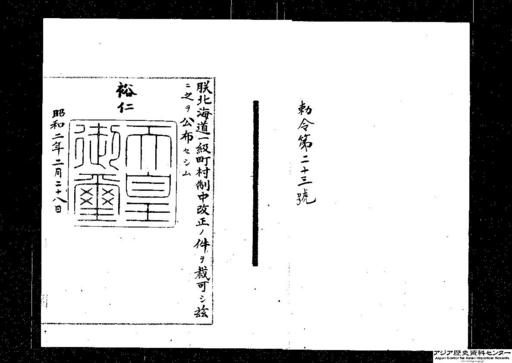 勅令第二十三號
朕北海道一級町村制中改正ノ件ヲ裁可シ茲
ニ之ヲ公布セシム
裕仁
天皇
御璽
昭和二年二月二十八日
アジア歴史資料センター
Japan Center for Asian Historical Records